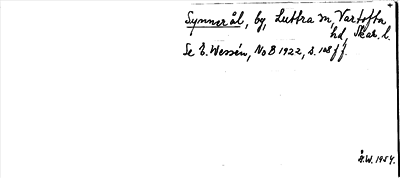 Synnerål, by, Luttra sn, Vartofta
hd, Skar. l.
Se E. Wessén, NoB 1922, s. 108 ff.
E.W. 1954.